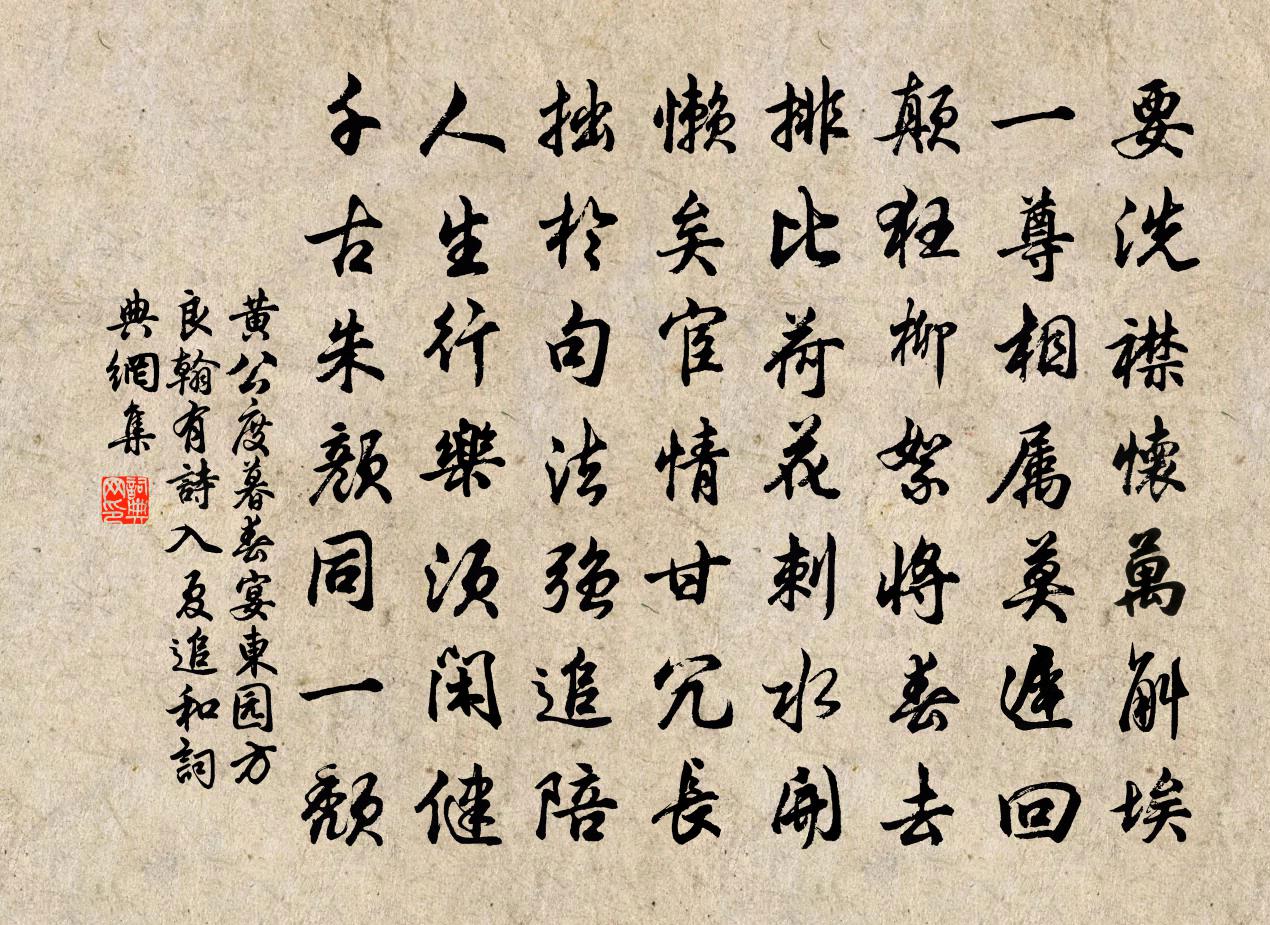 要洗襟懷萬斛埃
一尊相属莫遲回
顛狂柳絮將春去
排比荷花刺水開
懶矣宦情甘冗長
拙於句法強追陪
人生行樂須閑健
千古朱顏同一頹
黃公度暮春宴東园方
良翰有詩入夏追和詞
典網集
詞典网印